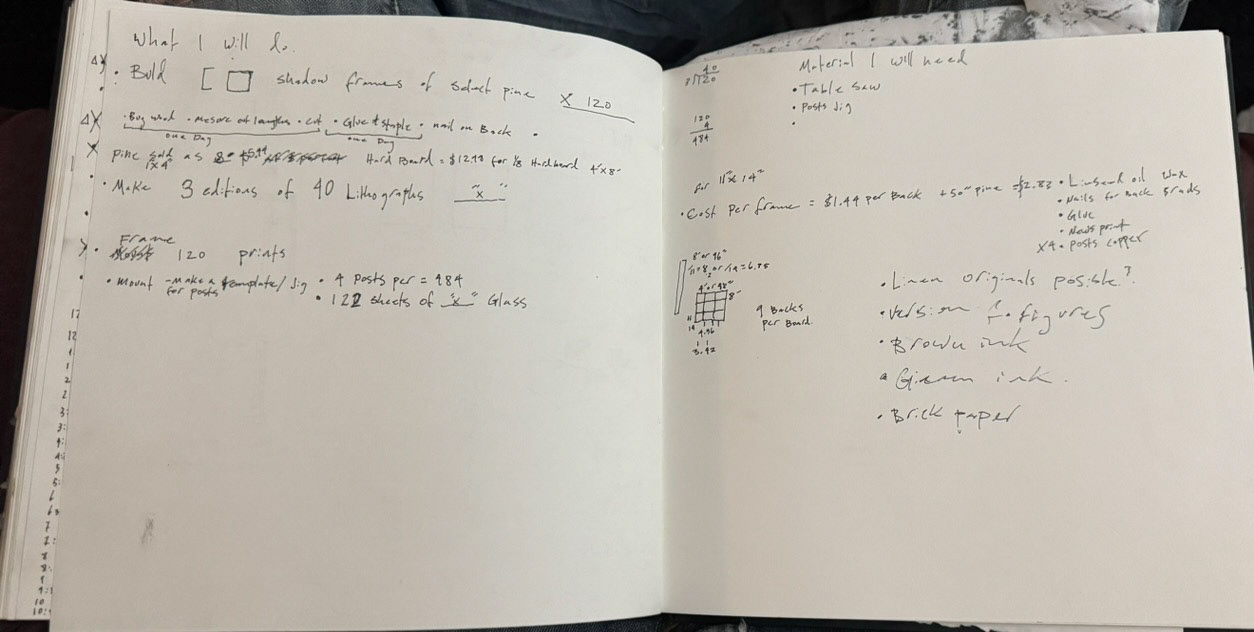 What I will do.
• Buld [ □ shadow frames of select pine X 120
• Buy wood • mesore out lengths • cut • Glue & staple • nail on Back •
one Day one Day
pine sold as Hard Board = $12.98 for 1/8 Hardboard 4'x8'
1"x4"
• Make 3 editions of 40 Lithographs "x"
Frame
• 120 prints
• Mount - make a template/Jig • 4 posts per = 484
for posts • 122 sheets of "x" Glass
12
12
1
1
2
2
3:
3:
4:
4:
5
5:
6
6:
7
7:
8
8:
9
9:
10
10:
Material I will need
40
3)120
• Table saw
• Posts Jig
•
120
4
484
for 11"x14"
• Cost per frame = $1.44 per Back + 50" pine = $2.83
• Linseed oil wax
• Nails for Back & rads
• Glue
• News print
X4 • posts copper
8' or 96"
/11=8.2 or /14=6.85
4' or 48"
8'
11
14
4.36
3.42
9 Backs
per Board.
• Linen originals posible?
• Version ? • figures
• Brown ink
• Green ink.
• Brick paper